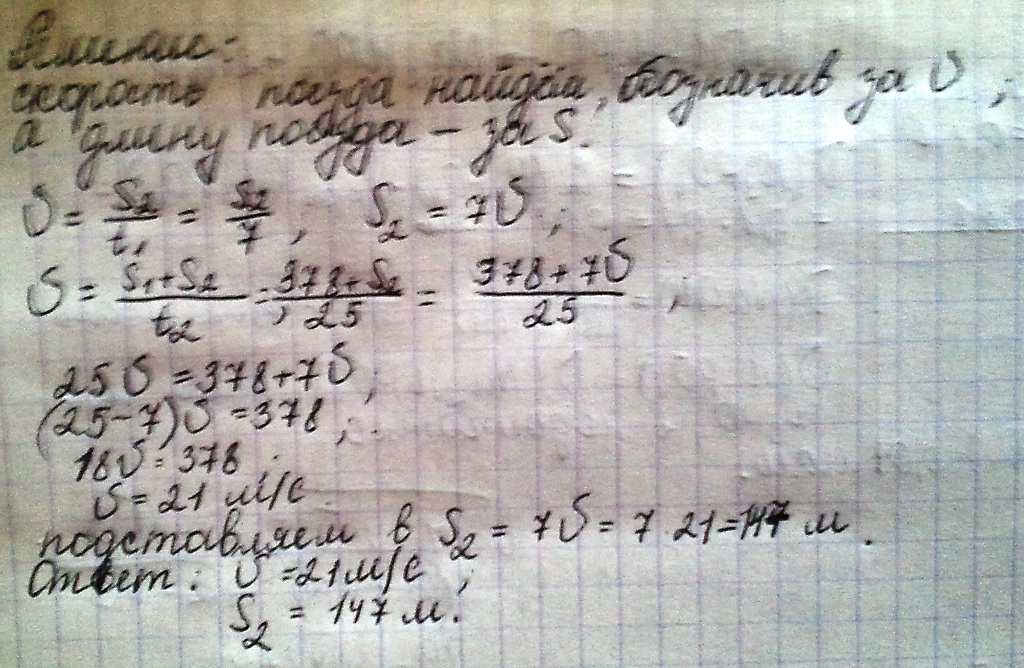 Решение:
скорость поезда найдём, обозначив за υ ;
а длину поезда – за S.
υ = S₂/t₁ = S₂/7 , S₂ = 7υ ;
υ = (S₁+S₂)/t₂ = (378+S₂)/25 = (378+7υ)/25 ,
25υ = 378+7υ ;
(25-7)υ = 378 ;
18υ = 378 ;
υ = 21 м/с
подставляем в S₂ = 7υ = 7 21 = 147 м .
Ответ: υ = 21 м/с ;
S₂ = 147 м.